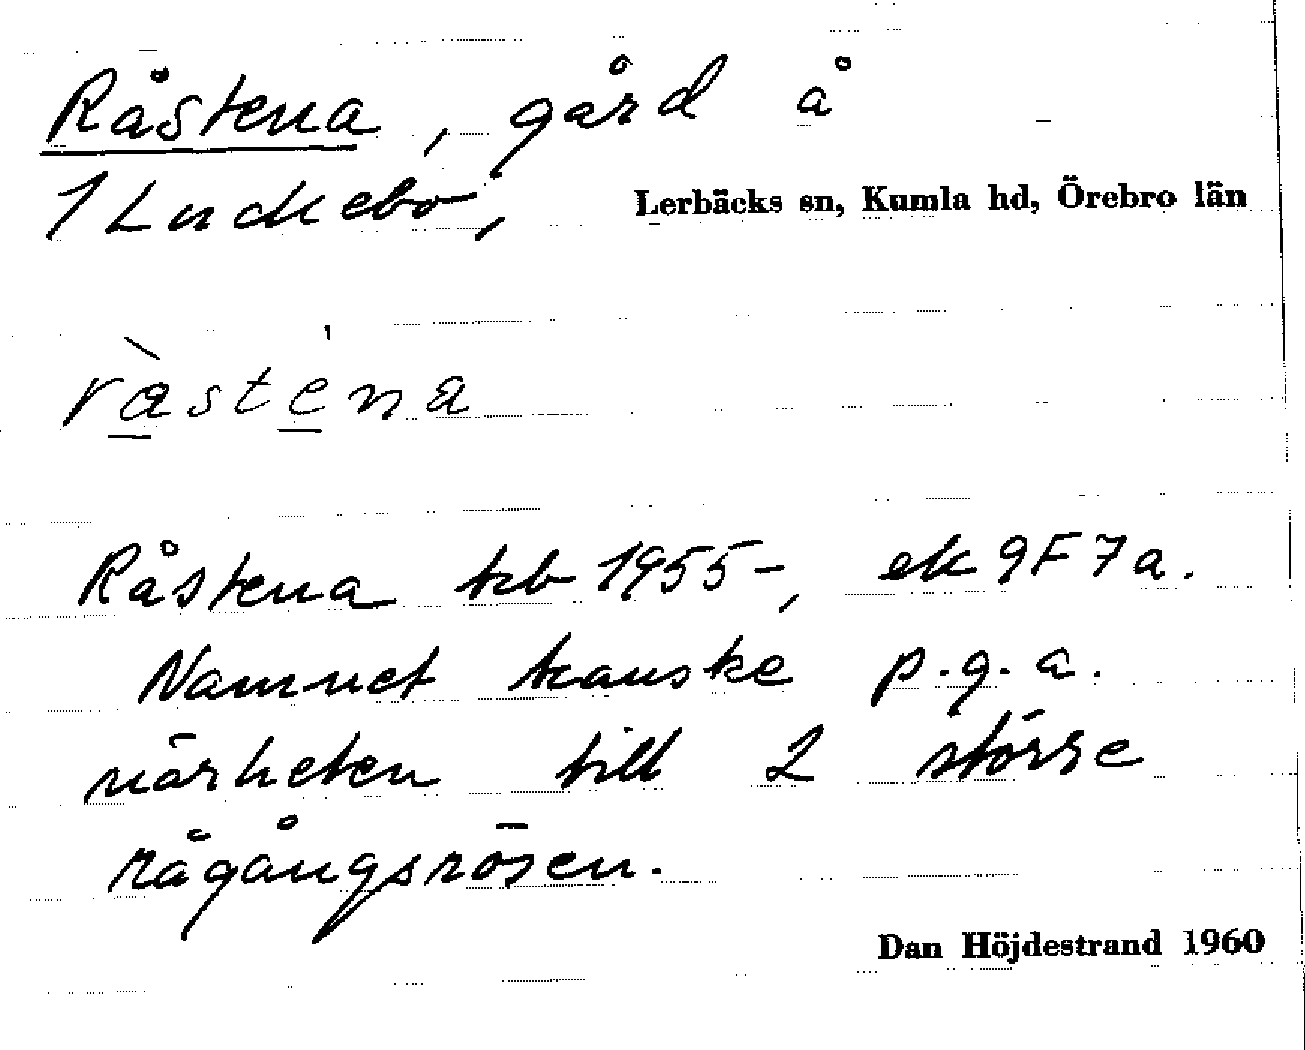 Råstena, gård å
1 Luckebo,
Lerbäcks sn, Kumla hd, Örebro län
ràste̍na
Råstena kb 1955-, ek 9F7a.
Namnet kanske p.g.a.
närheten till 2 större
rågångsrösen.
Dan Höjdestrand 1960